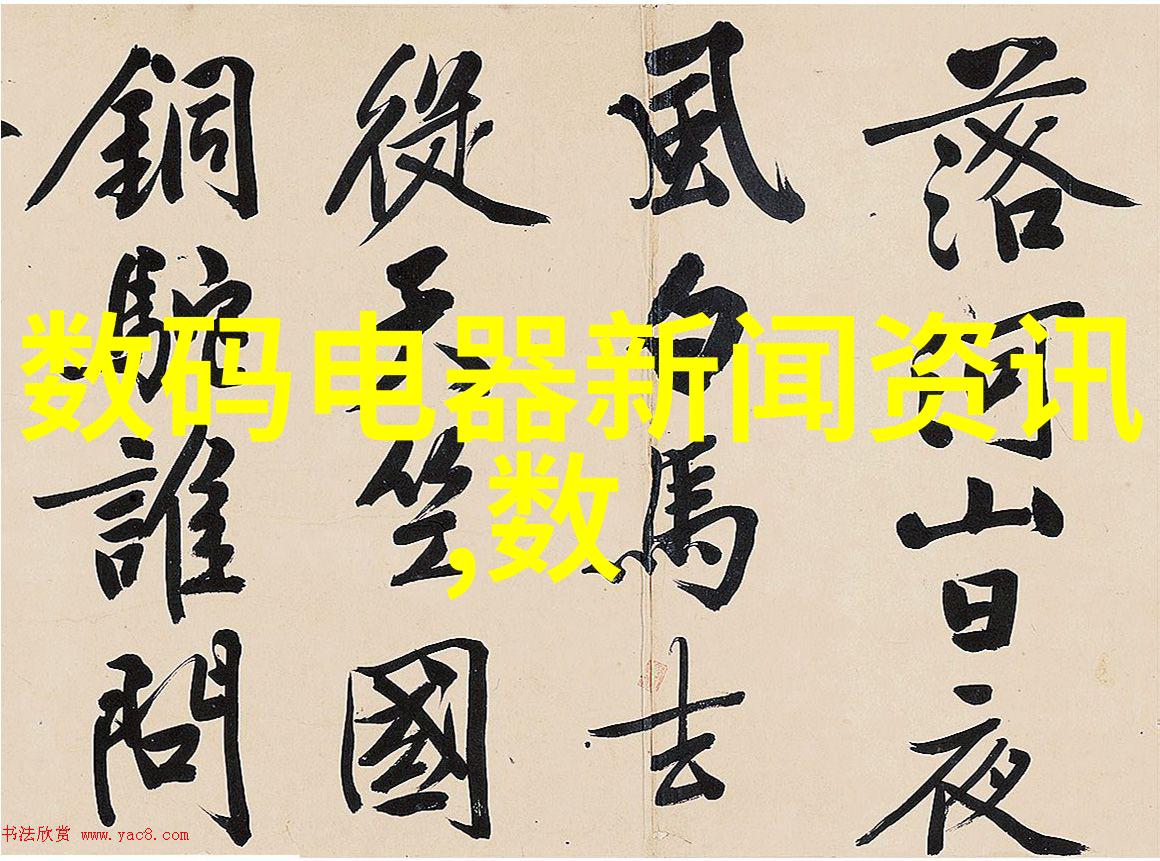 落山日夜
風白馬去
從天竺國
銅駝誰問
数码电器新闻资讯
,数
书法欣赏 www.yac8.com